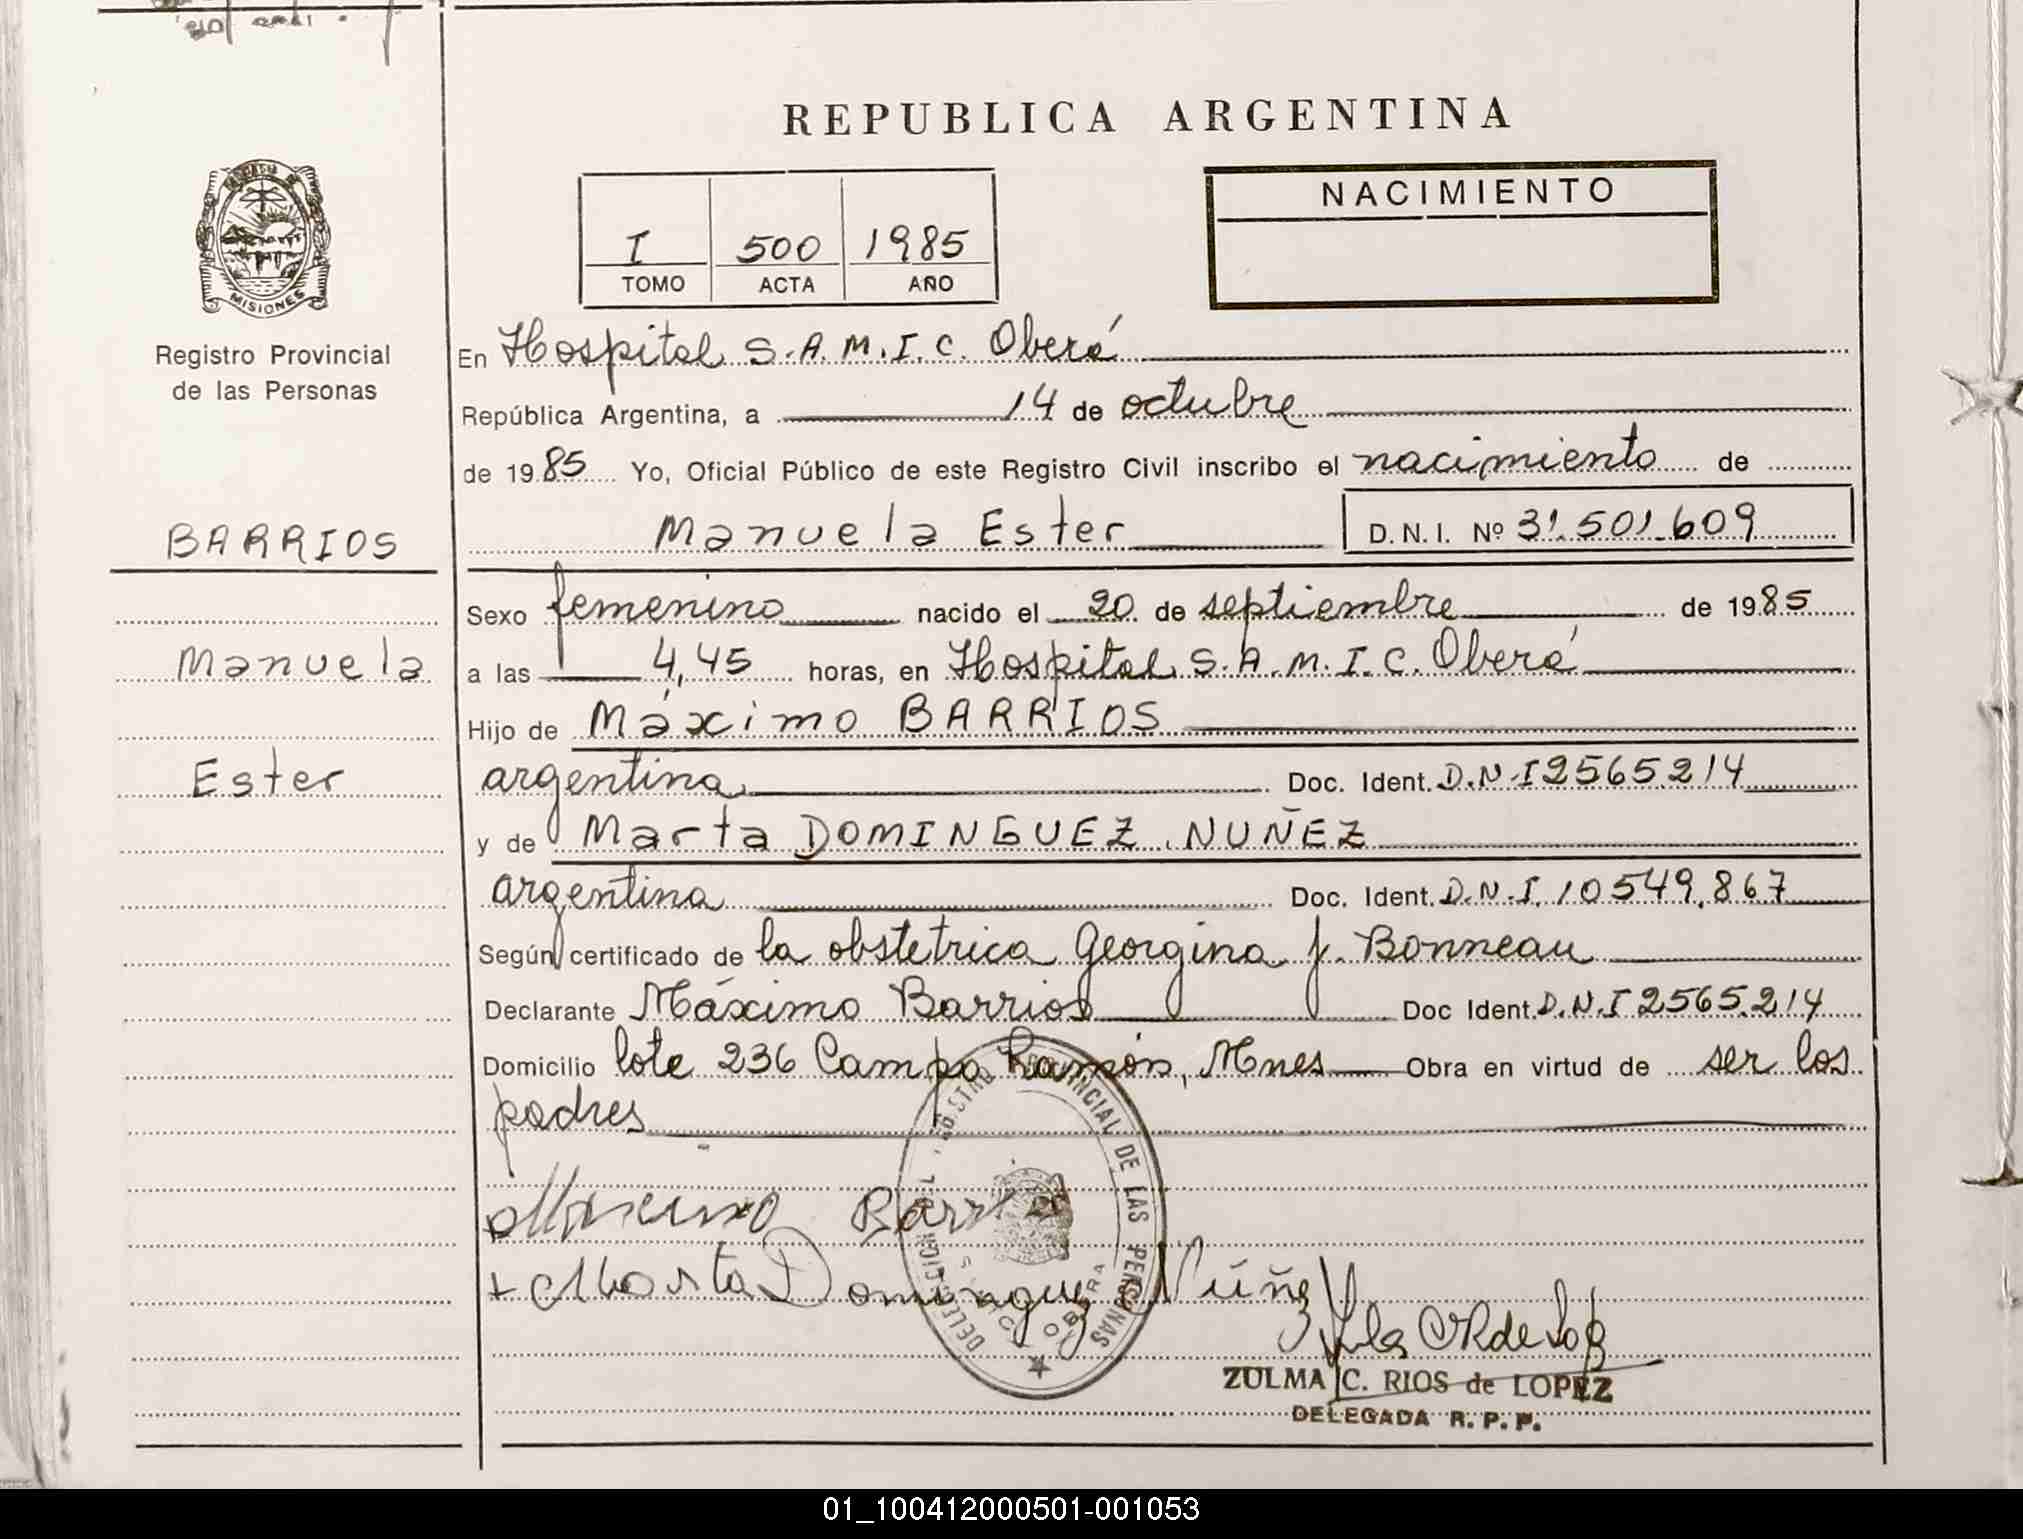 REPUBLICA ARGENTINA
MISIONES
Registro Provincial
de las Personas
I 500 1985
TOMO ACTA AÑO
NACIMIENTO
En Hospital S.A.M.I.C. Oberá
República Argentina, a 14 de octubre
de 1985 Yo, Oficial Público de este Registro Civil inscribo el nacimiento de
BARRIOS
Manuela Ester D.N.I. Nº 31.501.609
Sexo femenino nacido el 20 de septiembre de 1985
Manuela
a las 4,45 horas, en Hospital S.A.M.I.C. Oberá
Hijo de Máximo BARRIOS
Ester
argentina Doc. Ident. D.N.I 2565.214
y de Marta DOMINGUEZ NUÑEZ
argentina Doc. Ident. D.N.I. 10549.867
Según certificado de la obstetrica Georgina J. Bonneau
Declarante Máximo Barrios Doc Ident. D.N.I 2565.214
Domicilio lote 236 Campo Ramón, Mnes Obra en virtud de ser los
padres
Maximo Barrios
+ Marta Dominguez Núñez
DELEGACION DEL REGISTRO PROVINCIAL DE LAS PERSONAS
OBERA
ZULMA C. RIOS de LOPEZ
DELEGADA R. P. P.
01_100412000501-001053